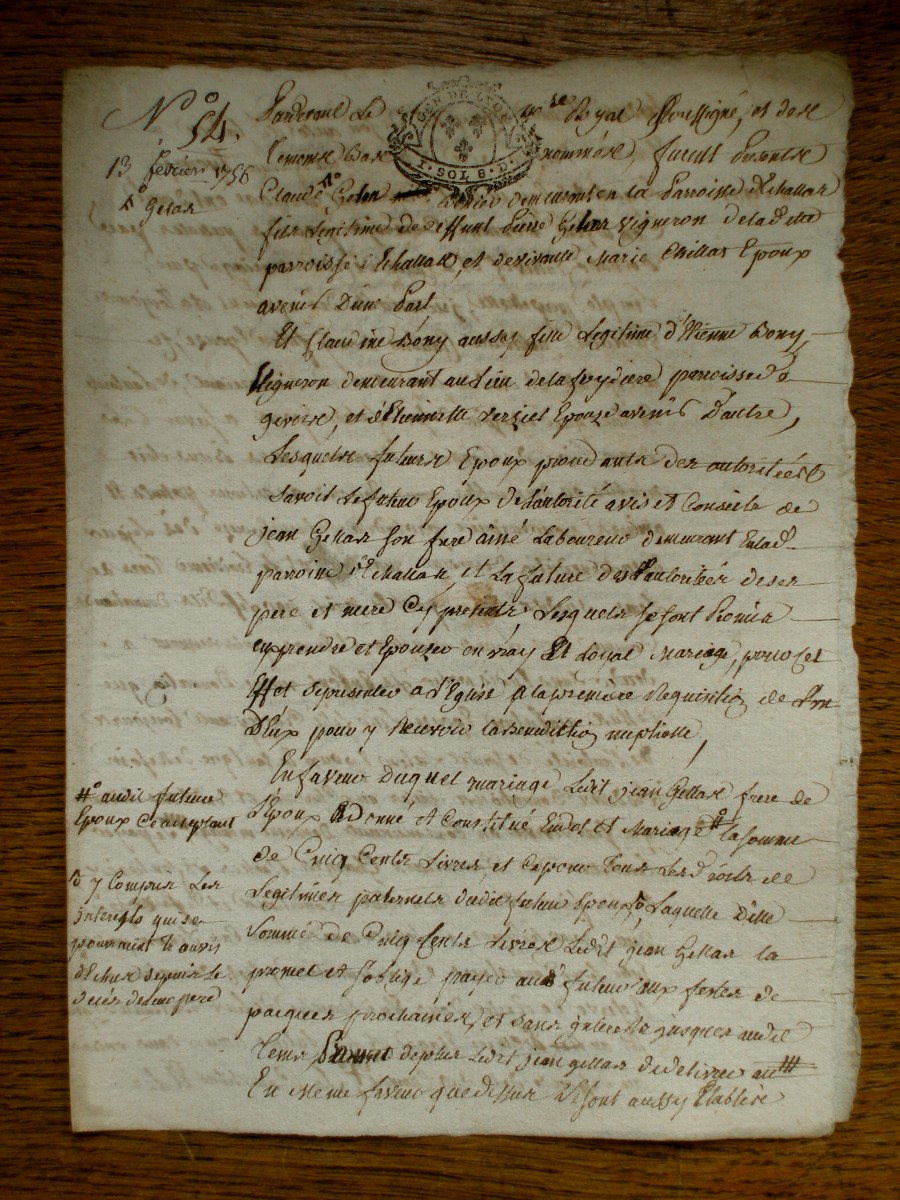 N° 54.
13 fevrier 1756
Gellas
GEN DE LYON
1 SOL 8 D
Pardevant Le no.re Royal Soussigné, et des
temoins Bas nommés, furent presents
Claude Gellas demeurant a la Parroisse d'Echallas
fils Legitime de deffunt pierre Gellas vigneron deladitte
parroisse d'Echallas, et devivante Marie Chillas Epoux
avenir D'une Part
Et Claudine Bony aussy fille Legitime d'Etienne Bony,
vigneron demeurant au Lieu de la parroisse de
givors, et d'Etiennette Verziel Epouze avenir D'autre,
Lesquels futurs Epoux procedants des autoritées
Savoir Lefutur Epoux de L'autorité avis et Conseils de
jean Gellas son frere ainé Laboureur demeurant Enlad.
parroisse d'Echallas, et La future des autoritées deses
pere et mere Cy presents, Lesquels se sont Promis
se prendre et Epouzer en vray Et Loyal Mariage, pour Cet
Effet se presenter a L'Eglise a la premiere Requisition de L'un
D'Eux pour y Recevoir la Benediction nuptialle,
En faveur Duquel mariage Ledit jean Gellas frere de
L'Epoux a Donné et Constitué En dot et Mariage # la somme
de Cinq Cents Livres, et Cepour Tous Les Droits de
Legitimes paternels dudit futur Epoux, Laquelle ditte
Somme de Cinq Cents Livres Ledit jean Gellas la
promet et s'oblige payer aud. futur aux festes de
pacques prochaines, et sans interets jusques audit
tems deplus Ledit jean gellas de delivrer au
En Meme faveur que dessus se sont aussy Etablis
# audit futur
Epoux Ce acceptant
y Compris Les
interests qui se
pourraient trouvés
d'Echus depuis le
deces de leur pere